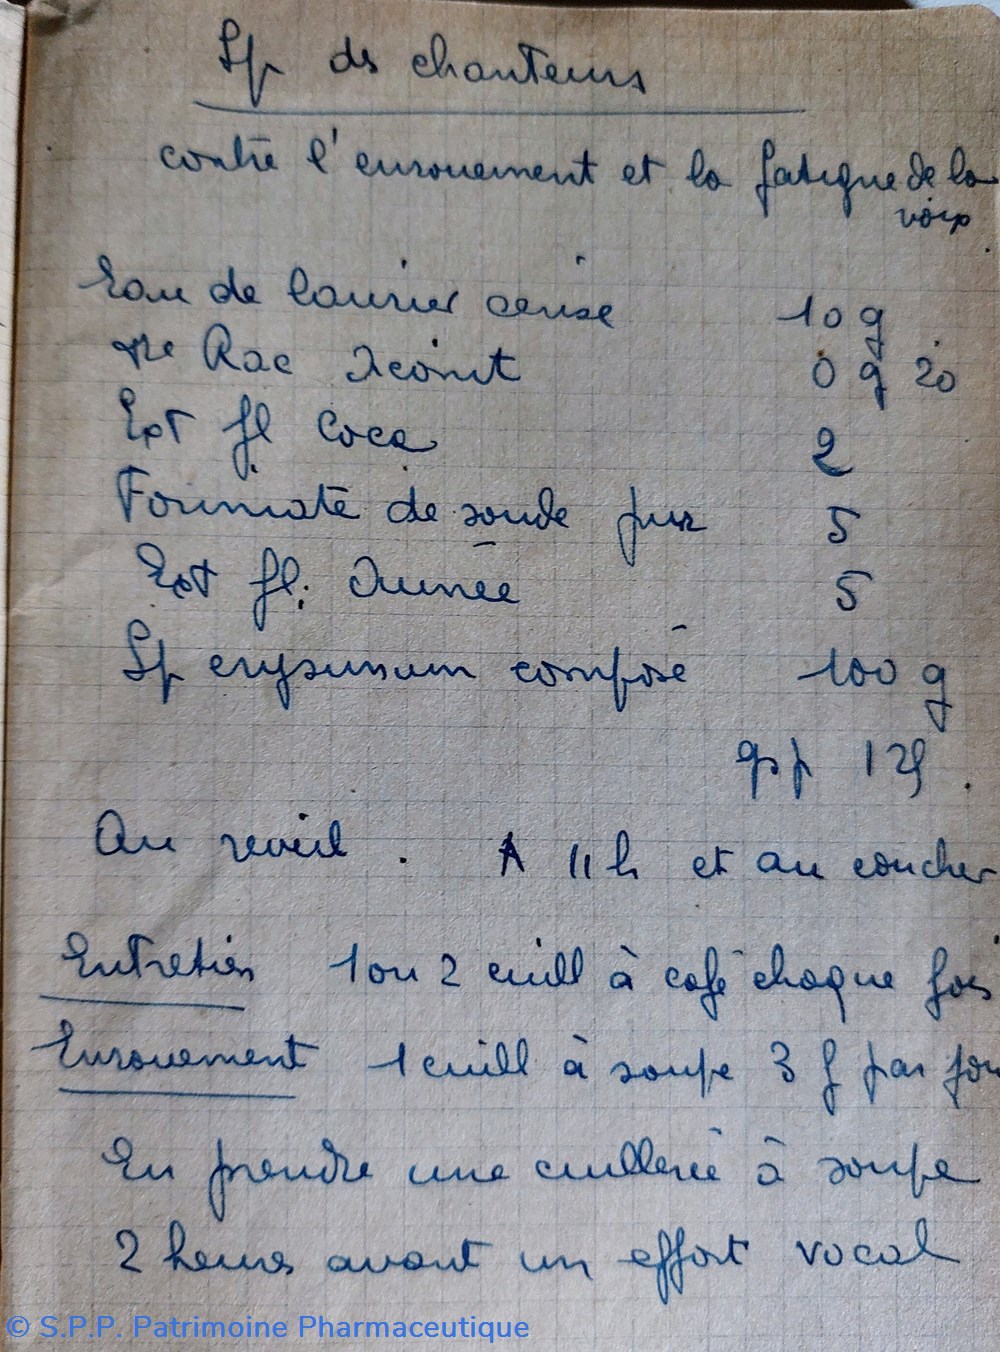 Sp des chanteurs
contre l'enrouement et la fatigue de la
voix
Eau de laurier cerise 10 g
Tre Rac Aconit 0 g 20
Ext fl Coca 2
Formiate de soude pur 5
Ext fl. Aunée 5
Sp erysimum composé 100 g
qsp 1 lf.
Au reveil. A 11 h et au coucher
Entretien 1 ou 2 cuill à café chaque fois
Enrouement 1 cuill à soupe 3 f par jou
En prendre une cuillerée à soupe
2 heures avant un effort vocal
© S.P.P. Patrimoine Pharmaceutique